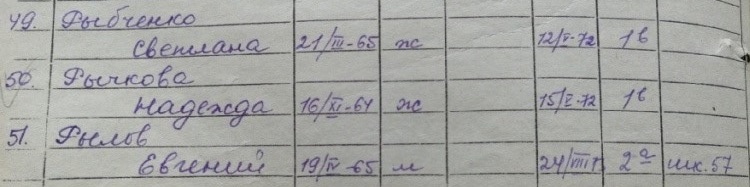 49. Рыбченко
Светлана 21/III-65 ж 12/V-72 1в
50. Рычкова
Надежда 16/XI-64 ж 15/V-72 1в
51. Рылов
Евгений 19/IV-65 м 24/VIII 2а шк. 57